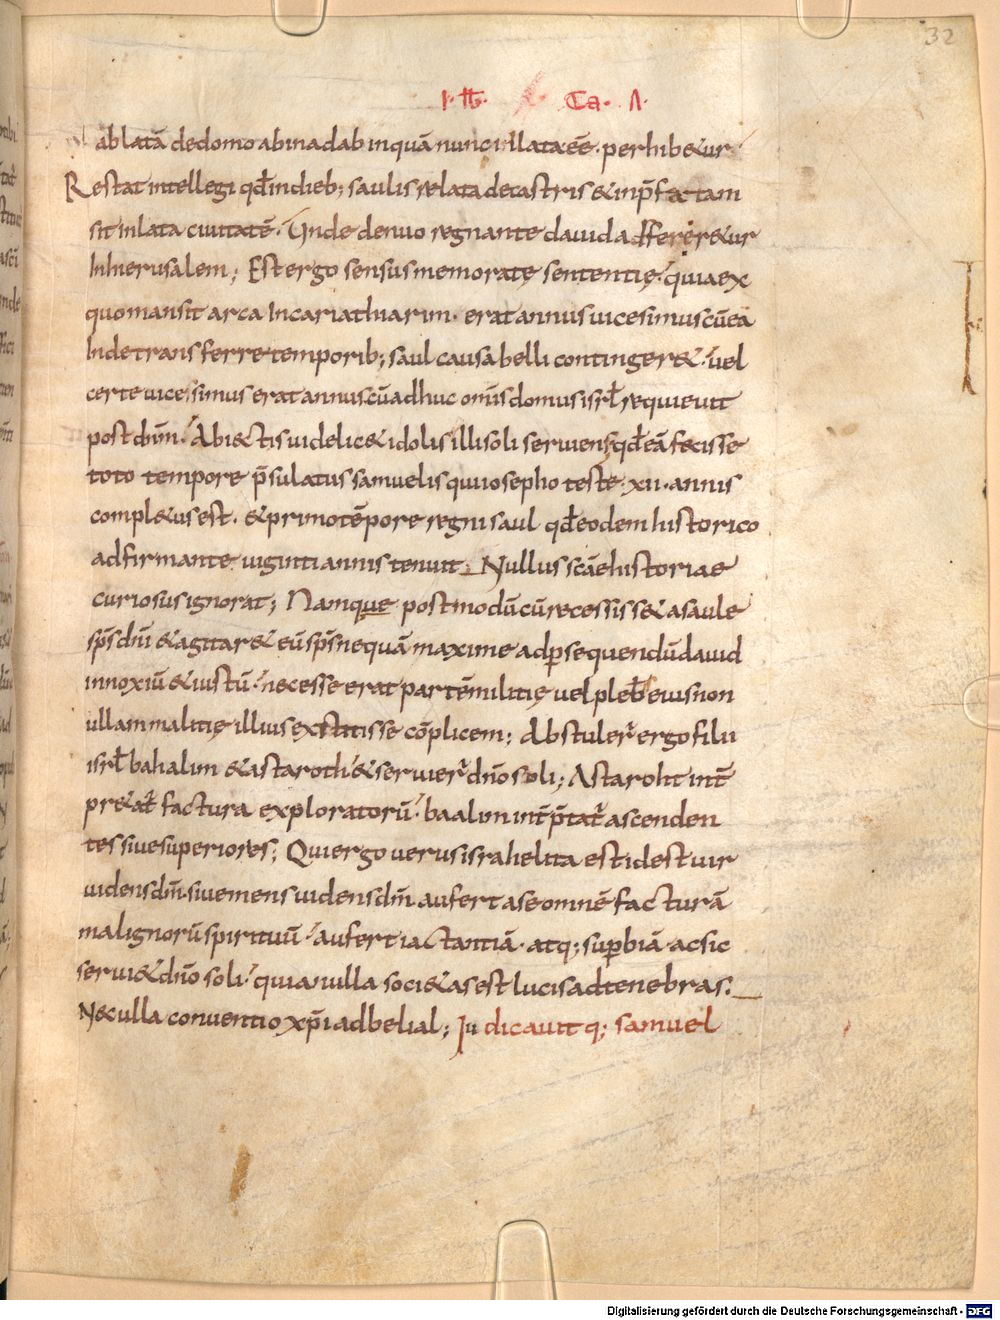 32
ablatā de domo abinadab inquā nunc illata eē. perhibetur
Restat intellegi qđ in dieb; saulis relata de castris & in p̄fatam
sit inlata ciuitatē. Unde denuo regnante dauid adferretur
In hierusalem; Est ergo sensus memoratę sententię. quia ex
quo mansit arca In cariathiarim. erat annus uicesimus cū eā
Inde transferre temporib; saul causa belli contingeret. uel
certe uicessimus erat annus. cū adhuc om̄is domus isrł requieuit
post dn̄m. Abiectis uidelicet idolis illi soli seruiens. qđ eā fecisse
toto tempore p̄sulatus samuelis qui iosepho teste. xii. annis
completus est. & primo tēpore regni saul qđ eodem historico
adfirmante uiginti annis tenuit. Nullus scāe historiae
curiosus ignorat; Namque postmodū cū recessisset a saule
sp̄s dn̄i & agitaret eū sp̄s nequā maxime ad ꝑsequendū dauid
innoxiū & iustū. necesse erat partē militię uel pleb̄ eius non
ullam malitię illius extitisse cōplicem; Abstuler̄ ergo filii
isrł bahalim & astaroth. & seruier̄ dn̄o soli; Astaroht int̄
pretat̄ factura exploratorū. baalim int̄p̄tat̄ ascenden
tes siue superiores; Qui ergo uerus israhelita est id est uir
uidens dm̄. siue mens uidens dm̄. aufert a se omnē facturā
malignorū spirituū. aufert iactantiā. atq; suꝑbiā. ac sic
seruiet dn̄o soli. quia nulla societas est lucis ad tenebras.
Nec ulla conuentio xp̄i ad belial; Iudicauitq; samuel
Digitalisierung gefördert durch die Deutsche Forschungsgemeinschaft - DFG